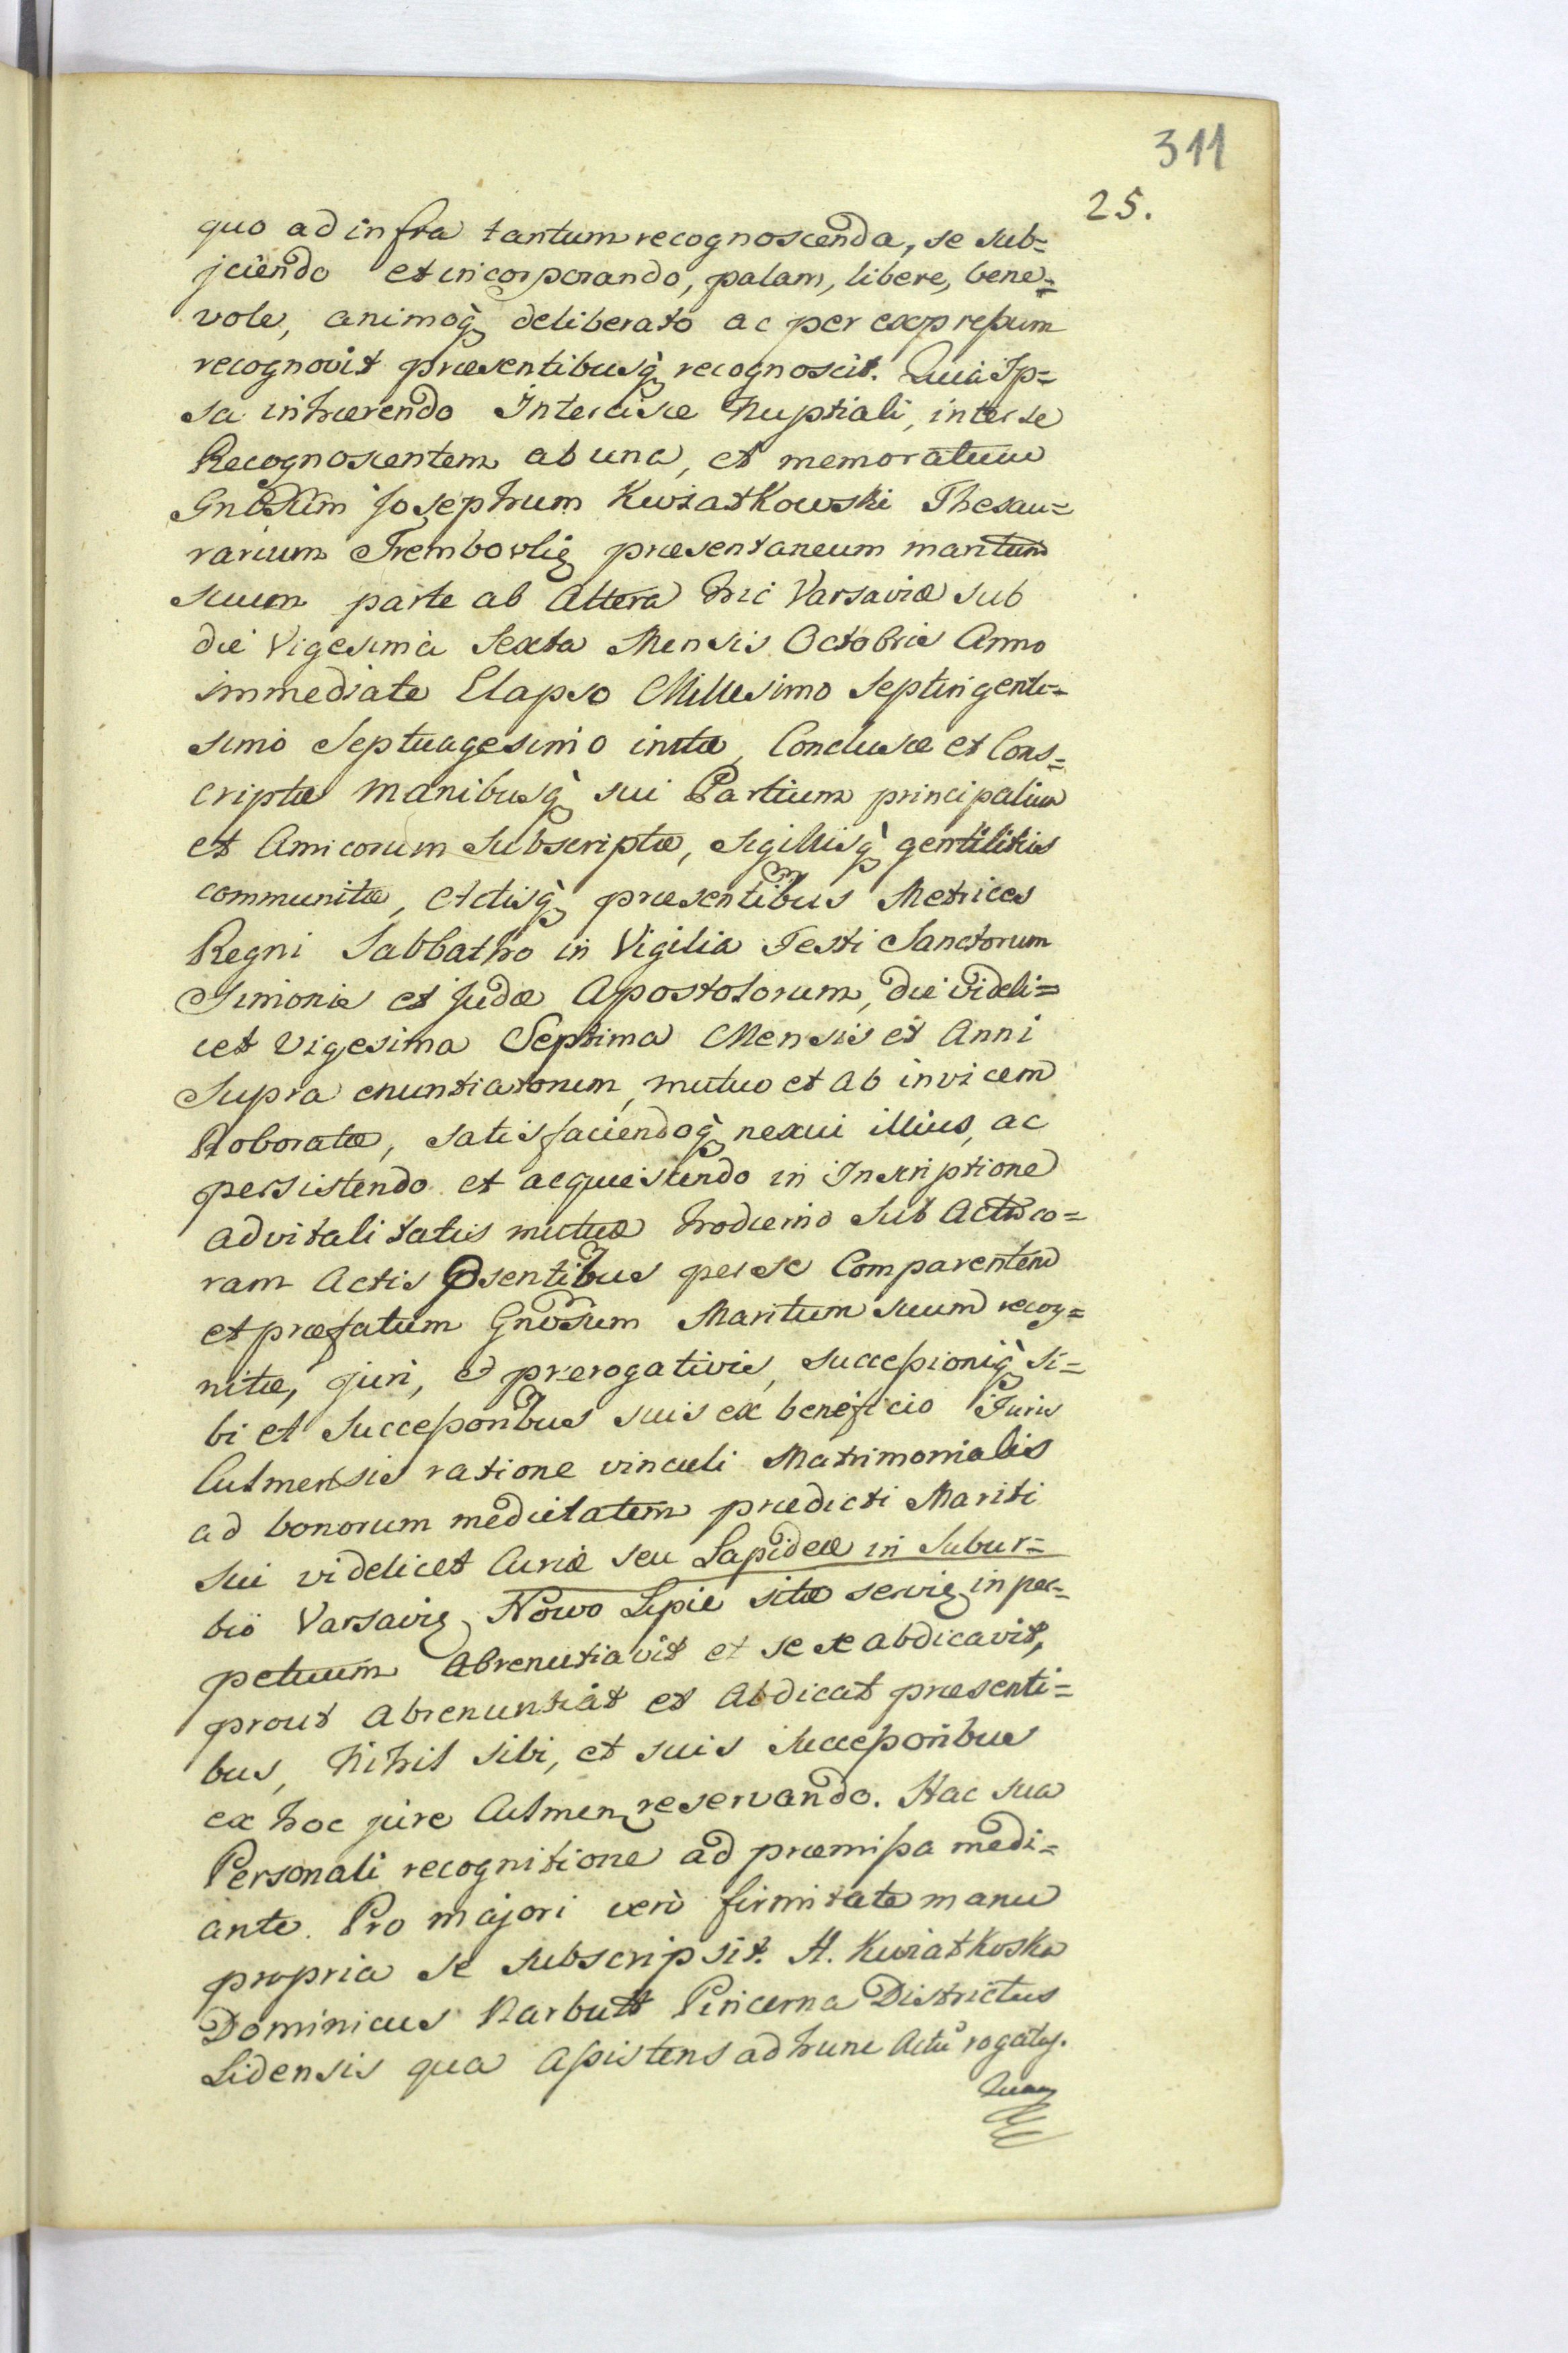 311
25.
quo ad infra tantum recognoscenda, se sub=
jciendo et incorporando, palam, libere, bene=
vole, animoq̀ deliberato ac per expressum
recognovit præsentibusq̀ recognoscit. Quia Ip=
sa inhærendo Intercisæ Nuptiali, inter se
Recognoscentem ab una, et memoratum
Gnosum Josephum Kwiatkowski Thesau=
rarium Trembovlię præsentaneum maritum
suum parte ab altera hic Varsaviæ sub
die Vigesima Sexta Mensis Octobris Anno
immediate Elapso Millesimo Septingente=
simo Septuagesimo initæ, Conclusæ et Cons=
criptæ manibusq̀ sui Partium principalium
et Amicorum subscriptæ, sigillisq̀ gentilitiis
communitæ, Actisq̀ præsentibus Metrices
Regni Sabbatho in Vigilia Festi Sanctorum
Simonis et Judæ Apostolorum, die videli=
cet Vigesima Septima Mensis et Anni
Supra enuntiatorum, mutuo et ab invicem
Roboratæ, satisfaciendoq̀ nexui illius, ac
persistendo et acquiescendo in Inscriptione
advitalitatis mutuæ hodierno sub Actu co=
ram Actis Psentibus per se Comparentem
et præfatum Gnosum Maritum suum recog=
nitæ, juri, & prerogativis, successioniq̀ si=
bi et Successoribus suis ex beneficio Juris
Culmensis ratione vinculi Matrimonialis
ad bonorum medietatem prædicti Mariti
sui videlicet Curiæ seu Lapideæ in Subur=
bio Varsavię Nowo Lipie sitæ servię in per=
petuum Abrenutiavit et se se abdicavit,
prout abrenuntiat et abdicat præsenti=
bus, Nihil sibi, et suis Successoribus
ex hoc jure Culmen reservando. Hac sua
Personali recognitione ad præmissa medi=
ante. Pro majori verò firmitate manu
propria se subscripsit. A. Kwiatkoska
Dominicus Narbutt Pincerna Districtus
Lidensis qua Assistens ad hunc Actu rogatus.